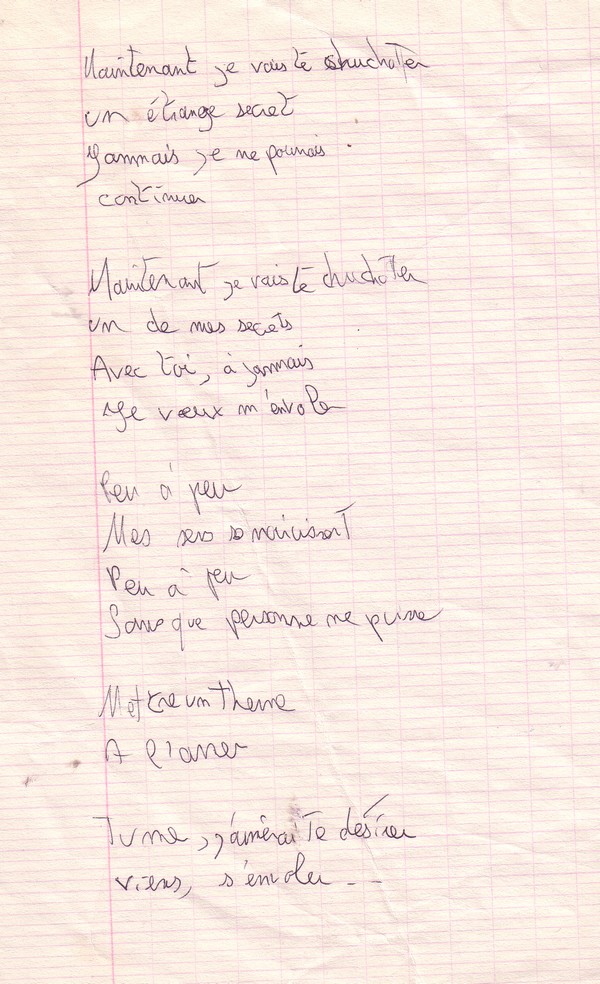 Maintenant je vais te chuchoter
un étrange secret
Jammais je ne pourrais
continuer
Maintenant je vais te chuchoter
un de mes secrets
Avec toi, à jammais
Je veux m'envoler
Peu à peu
Mes sens se noircissent
Peu à peu
Sans que personne ne puisse
Mettre un therme
A
Tu me, j'aimerai te désirer
viens, s'envoler --